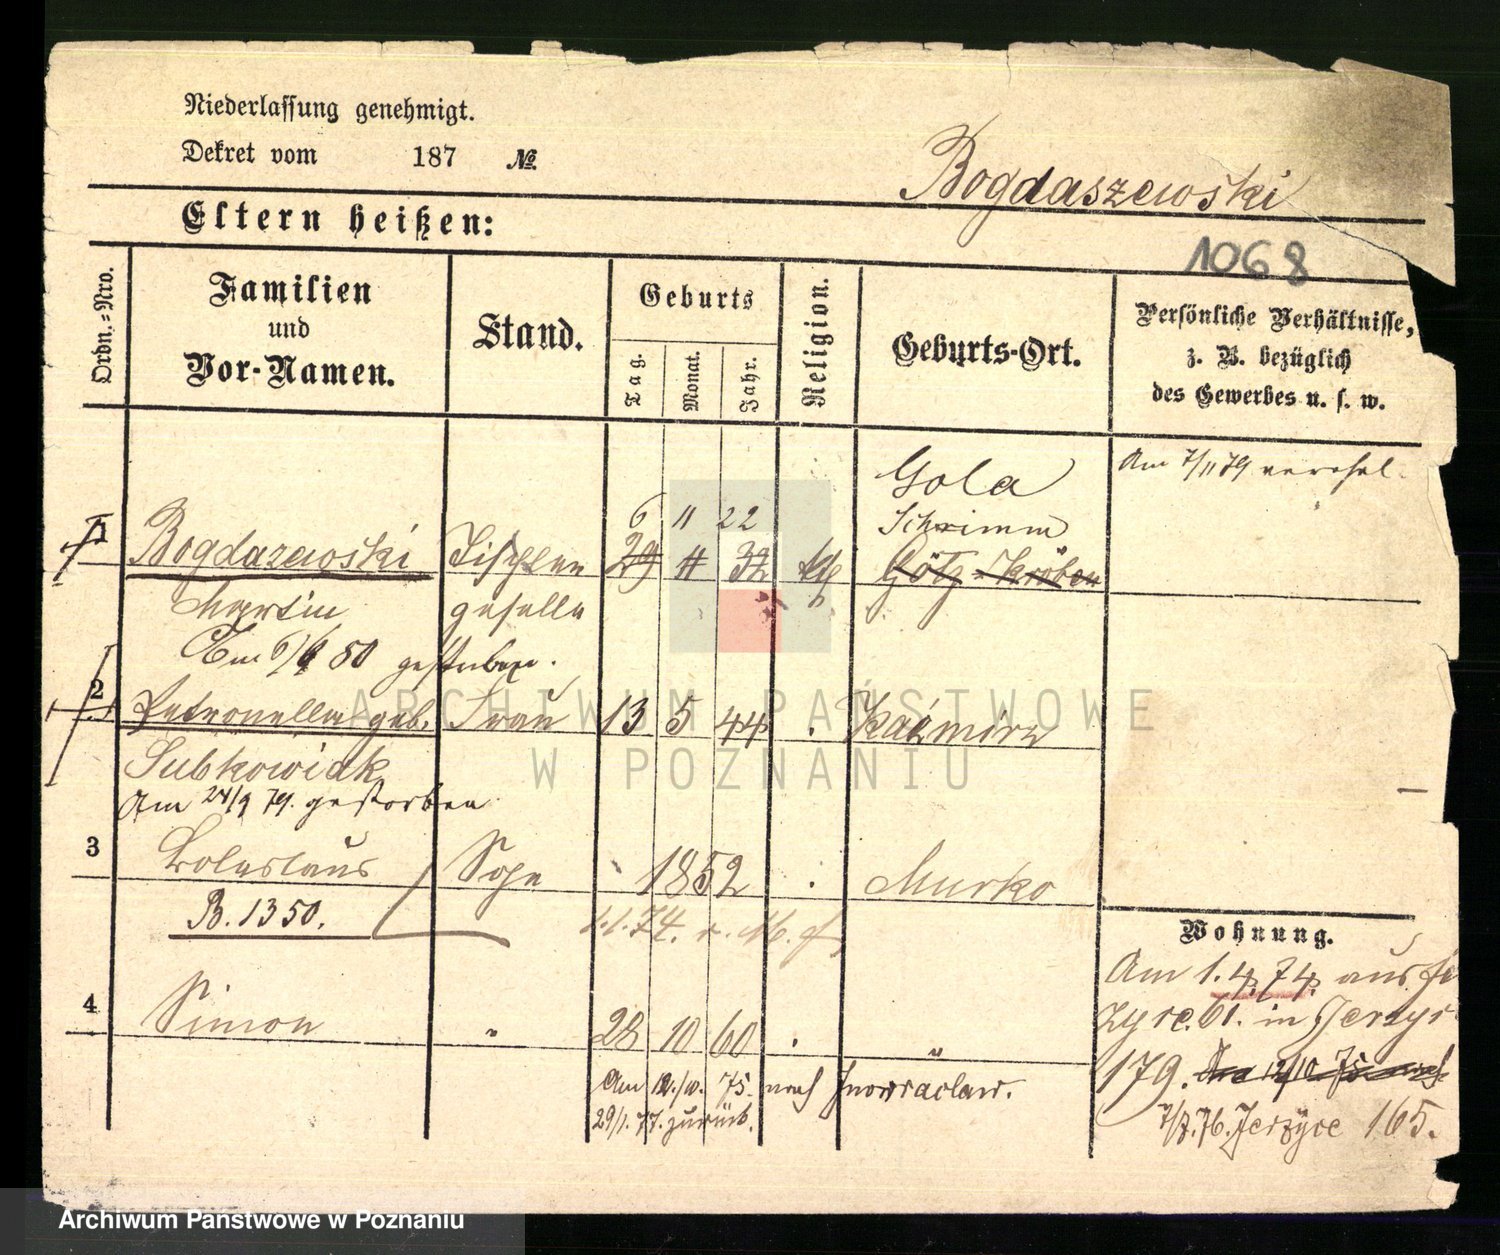 Niederlassung genehmigt.
Dekret vom 187 №
Bogdaszewski
Eltern heißen:
1068
Ordn.-Nro.
Familien
und
Vor-Namen.
Stand.
Geburts
Tag.
Monat.
Jahr.
Religion.
Geburts-Ort.
Persönliche Verhältnisse,
z. B. bezüglich
des Gewerbes u. s. w.
Am 7/11 79
Gola
6 11 22 Schrimm
1 Bogdazewski Tischler 29 11 32 kth Götz Kröben
Martin geselle
Am 6/9 80 gestorben.
2 Petronella geb. Frau 13 5 44 . Kaźmirz
Subkowiak
Am 24/9 79. gestorben
3 Boleslaus Sohn 1852 . Murko
B. 1350.
1.1.74. v. M. g
4 Simon " 28 10 60 . "
Am 12./10. 75. nach Inowraclaw.
29/1. 77. zurück.
Wohnung.
Am 1.4.74. aus Je
zyce. 61. in Jerzyc
179. 12/10 75 nach
7/7.76. Jerzyce 165.
ARCHIWUM PAŃSTWOWE
W POZNANIU
Archiwum Państwowe w Poznaniu